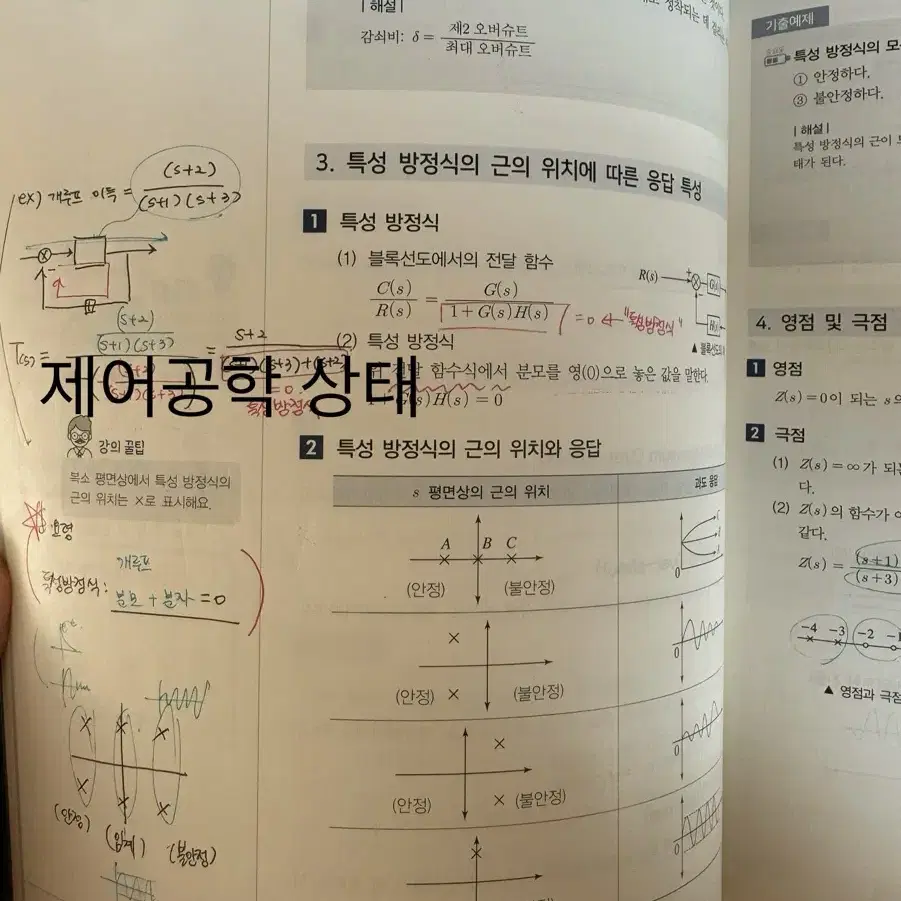 | 해설 |
감쇠비: δ = 제2 오버슈트 / 최대 오버슈트
3. 특성 방정식의 근의 위치에 따른 응답 특성
1 특성 방정식
(1) 블록선도에서의 전달 함수
C(s)/R(s) = G(s)/1+G(s)H(s) = 0 ← "특성방정식"
R(s)
(2) 특성 방정식
전달 함수식에서 분모를 영(0)으로 놓은 값을 말한다.
1+G(s)H(s) = 0
2 특성 방정식의 근의 위치와 응답
s 평면상의 근의 위치
과도 응답
A B C
(안정) (불안정)
0
(안정) (불안정)
0
(안정) (불안정)
0
ex) 개루프 이득 = (s+2)/(s+1)(s+3)
T(s) = (s+2)/(s+1)(s+3)
= s+2
특성방정식
제어공학 상태
강의 꿀팁
복소 평면상에서 특성 방정식의
근의 위치는 ×로 표시해요.
요령
개루프
특성방정식: 분모 + 분자 = 0
(안정) (임계) (불안정)
기출예제
특성 방정식의
① 안정하다.
③ 불안정하다.
| 해설 |
특성 방정식의 근이
태가 된다.
4. 영점 및 극점
1 영점
Z(s) = 0이 되는 s의
2 극점
(1) Z(s) = ∞가 되는
다.
(2) Z(s)의 함수가
같다.
Z(s) = (s+1)/(s+3)
-4 -3 -2 -1
▲ 영점과 극점